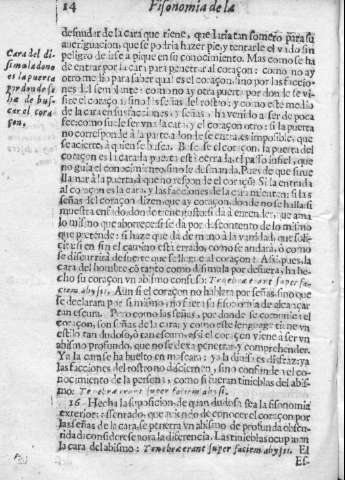 14 Fisonomia de la
desnudar de la cara que tiene, que daria tan somero para su
aueriguacion, que se podria hazer pie, y tentarle el vado sin
peligro de irse a pique en su conocimiento. Mas como se ha
de entrar por la cara para penetrar al coraçon: como no ay
otro medio para saber qual es el coraçon, sino por las faccio
nes del semblante: como no ay otra puerta, por donde le vi-
site el coraçon, sino las señas del rostro: y como este medio
de la cara en sus facciones, y señas, ha venido a ser de poca
como su de per ver la cara, y el coraçon otro: si la puerta
no corresponde à la parte adonde se entra, es imposible, que
se acierte, à quien se busca. Buscase el coraçon, la puerta del
coraçon es la cara: la puerta está errada, el passo infiel, que
no guia el conocimiento, sino le desmanda. Pues de que sirue
llamar à la puerta, que no responde el coraçon? Si la entrada
al coraçon es la cara, y las facciones de la cara mienten: si las
señas del coraçon dizen, que ay coraçon, donde no se halla: si
muestra enfado, donde tiene gusto: si dà à entender, que ama
lo mismo que aborrece: si se dà por descontento de lo mismo
que pretende: si haze que dà de mano à la vanidad, que soli-
cita: si en fin el camino està errado, como se andarà, ò como
se discurrirà de suerte que se llegue al coraçon? Assi pues, la
cara del hombre cõ tanto como dissimula por defuera, ha he-
cho su coraçon vn abismo confuso: Tenebræ erant super fa-
ciem abyssi. Aun si el coraçon no hablara por señas, sino que
se declarara por si mismo, no fuera su fisonomia de alcançar
tan escura. Pero como las señas, por donde se comunica el
coraçon, son señas de la cara: y como este lenguage tiene vn
estilo tan dudoso, ò tan escuro, es si el coraçon viene à ser vn
abismo profundo, que no se dexa penetrar, y comprehender.
Ya la cara se ha buelto en mascara: ya la dissimula disfraza: ya
las facciones del rostro no dan señas, sino confunden el co-
nocimiento de la persona, como si fueran tinieblas del abis-
mo: Tenebræ erant super faciem abyssi.
16 Hecha la suposicion de quan dudosa sea la fisonomia
exterior: assentado, que auiendo de conocer el coraçon por
las señas de la cara, se penetra vn abismo de profunda obscu-
ridad: considerese aora la diferencia. Las tinieblas ocupauan
la cara del abismo: Tenebræ erant super faciem abyssi. El
Es-
Cara del di
simulado no
es la puerta
por donde se
ha de bus-
car el cora
çon.